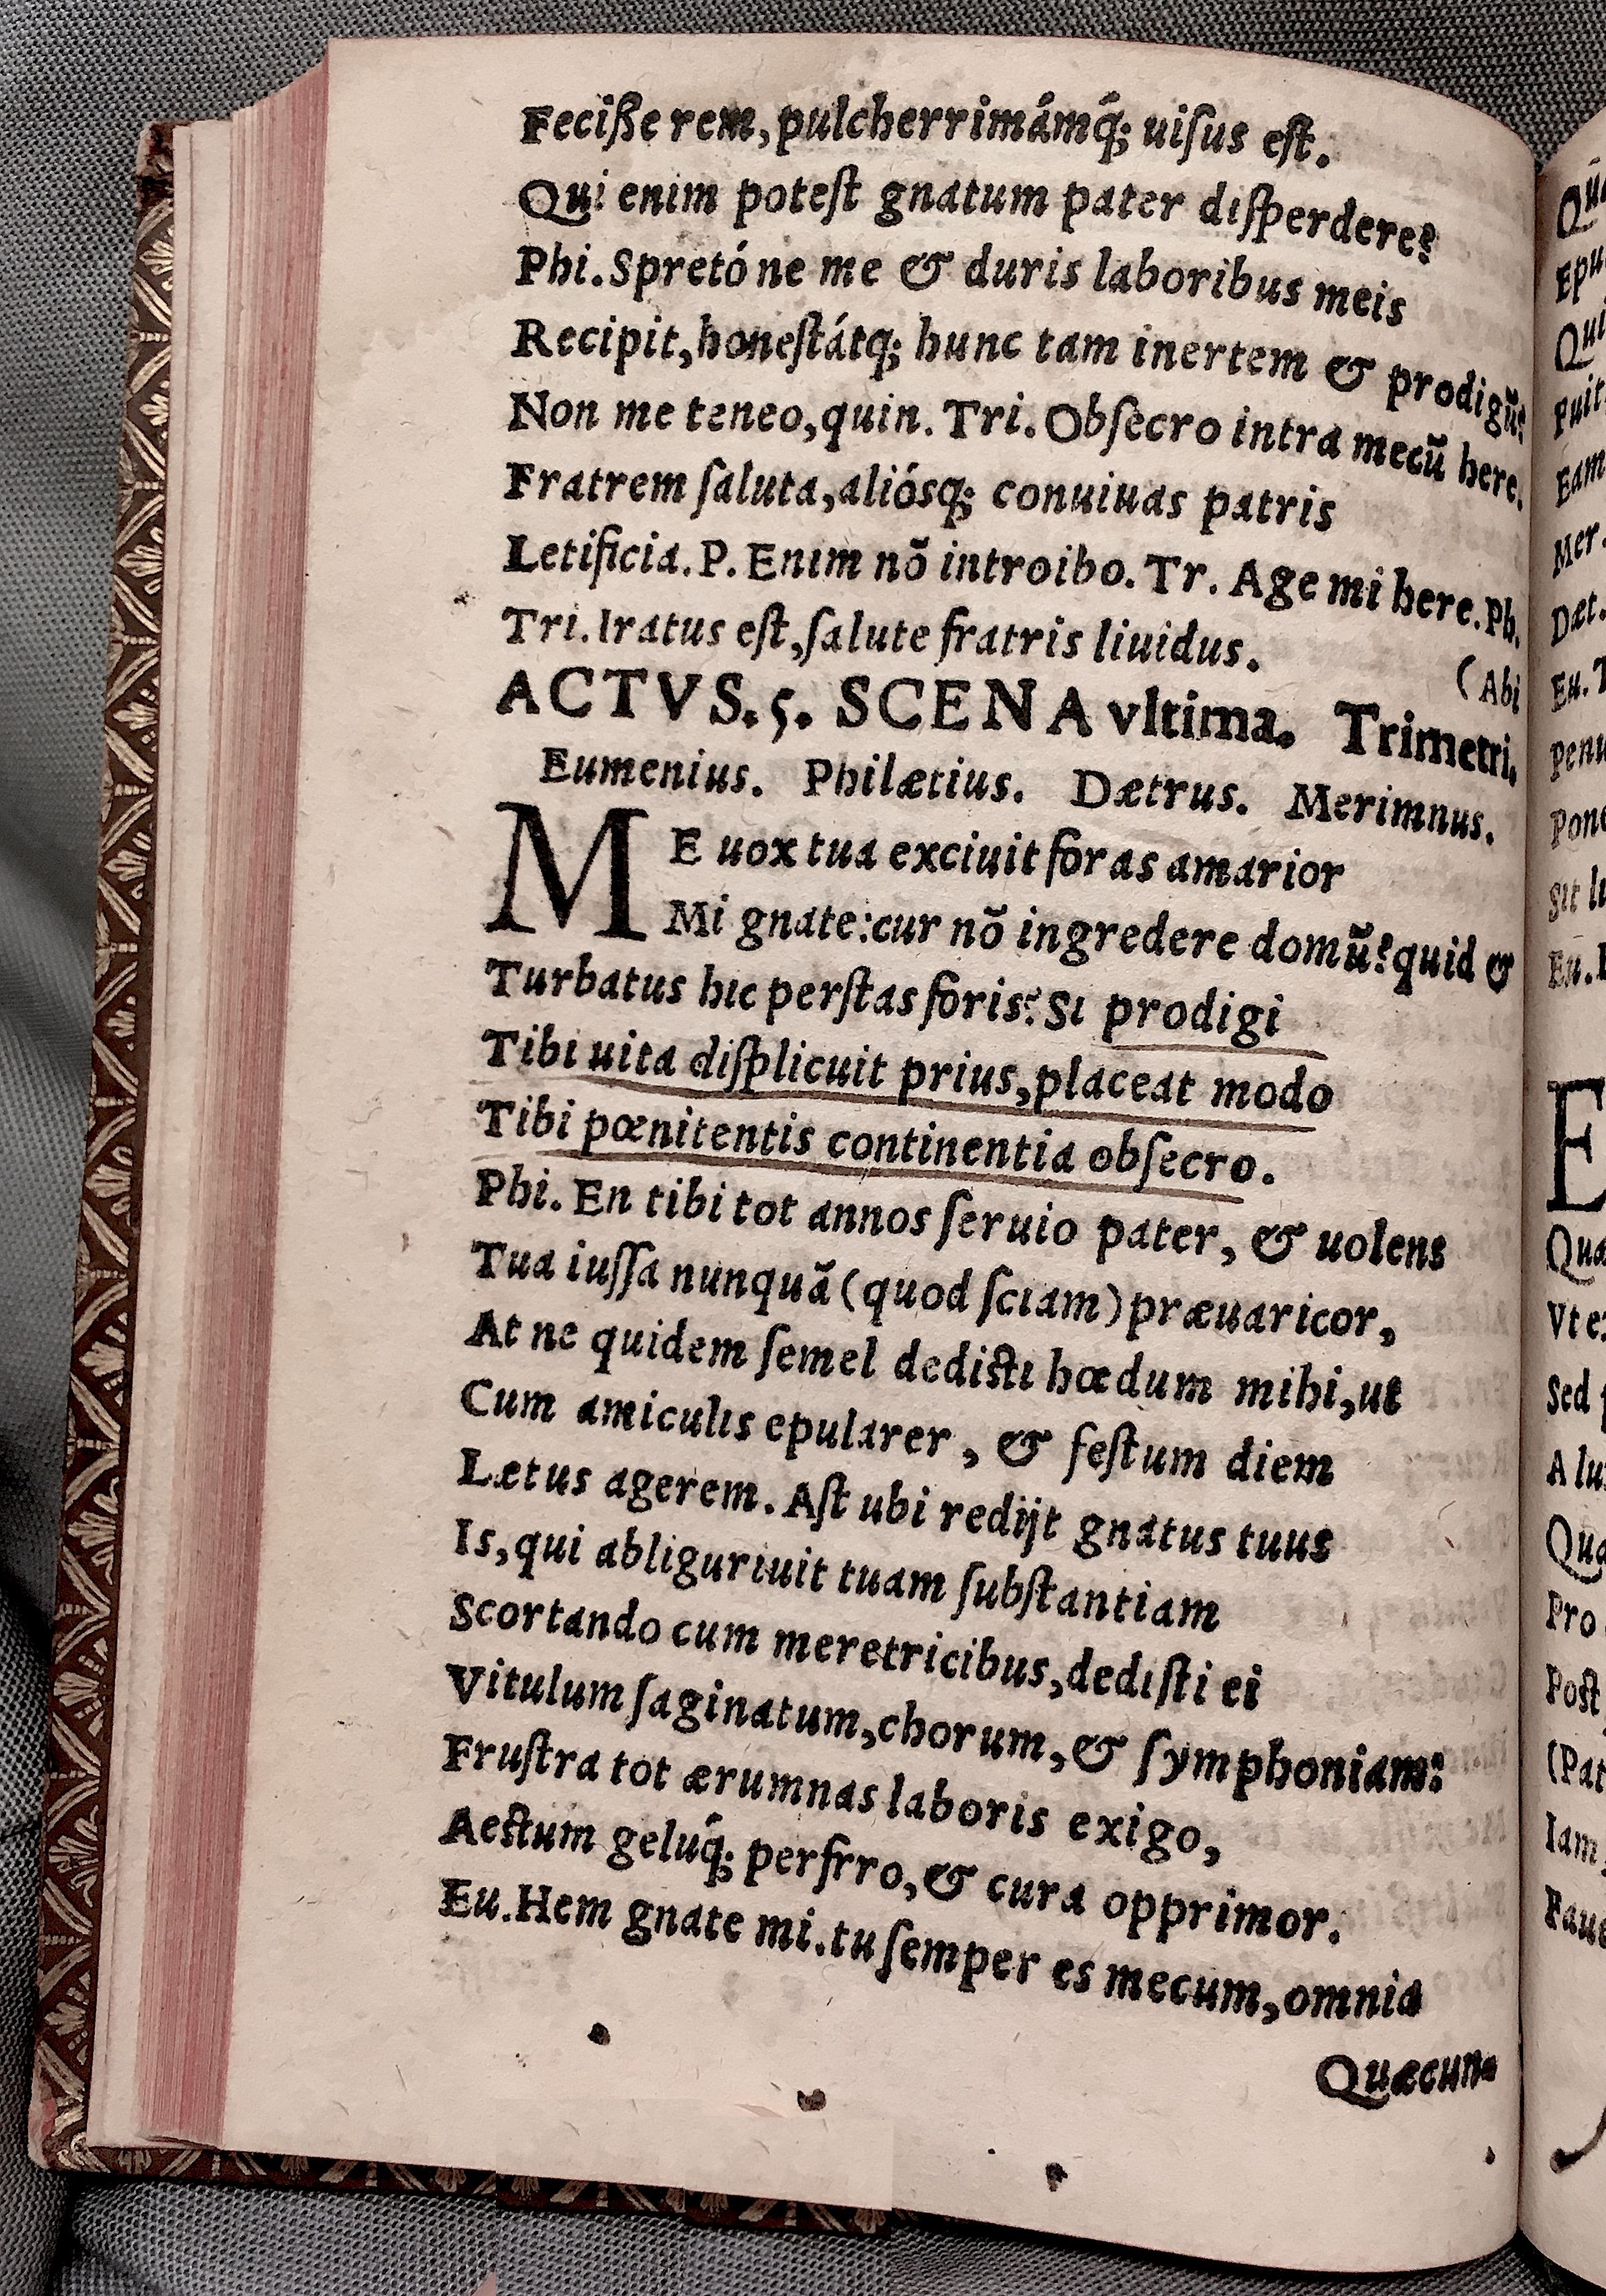 Feciße rem, pulcherrimámq́; uiſus eſt.
Qui enim poteſt gnatum pater diſperdere?
Phi. Spretó ne me & duris laboribus meis
Recipit, honeſtátq; hunc tam inertem & prodigũ?
Non me teneo, quin. Tri. Obſecro intra mecũ here.
Fratrem ſaluta, aliósq; conuiuas patris
Letificia. P. Enim nõ introibo. Tr. Age mi here. Ph.
Tri. Iratus eſt, ſalute fratris liuidus.
(Abi
ACTVS. 5. SCENA vltima. Trimetri.
Eumenius. Philætius. Dætrus. Merimnus.
ME uox tua exciuit foras amarior
Mi gnate: cur nõ ingredere domũ? quid &
Turbatus hic perſtas foris? Si prodigi
Tibi uita diſplicuit prius, placeat modo
Tibi pœnitentis continentia obſecro.
Phi. En tibi tot annos ſeruio pater, & uolens
Tua iuſſa nunquã (quod ſciam) præuaricor,
At ne quidem ſemel dediſti hœdum mihi, ut
Cum amiculis epularer, & feſtum diem
Lætus agerem. Aſt ubi redijt gnatus tuus
Is, qui abliguriuit tuam ſubſtantiam
Scortando cum meretricibus, dediſti ei
Vitulum ſaginatum, chorum, & ſymphoniam:
Fruſtra tot ærumnas laboris exigo,
Aeſtum gelúq́; perfrro, & cura opprimor.
Eu. Hem gnate mi. tu ſemper es mecum, omnia
Quæcun-
Qui
Mer.
Dæt.
Eu. T
Sit
Eu.
E
Vt
Sed
A
Pro
Poſt
(Pat
Iam